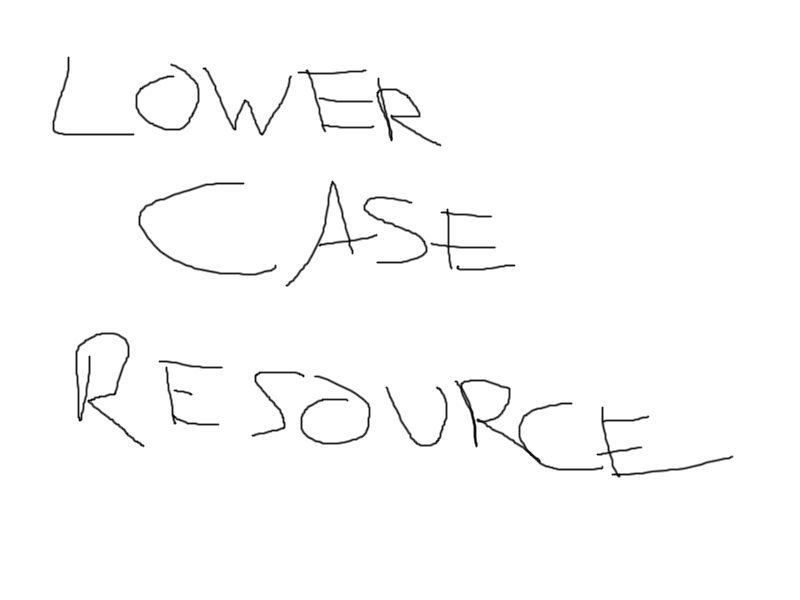 LOWER
CASE
RESOURCE